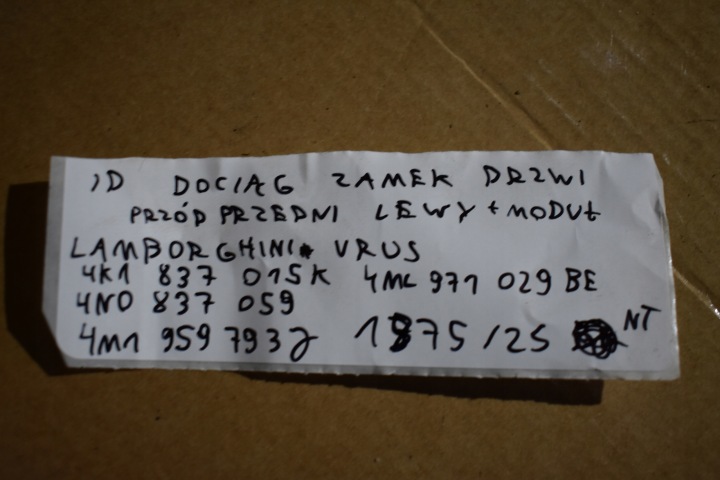 JD DOCIĄG ZAMEK DRZWI
PRZÓD PRZEDNI LEWY + MODUŁ
LAMBORGHINI VRUS
4K1 837 015K 4ML 971 029 BE
4N0 837 059
4M1 959 793J 1875/25 NT